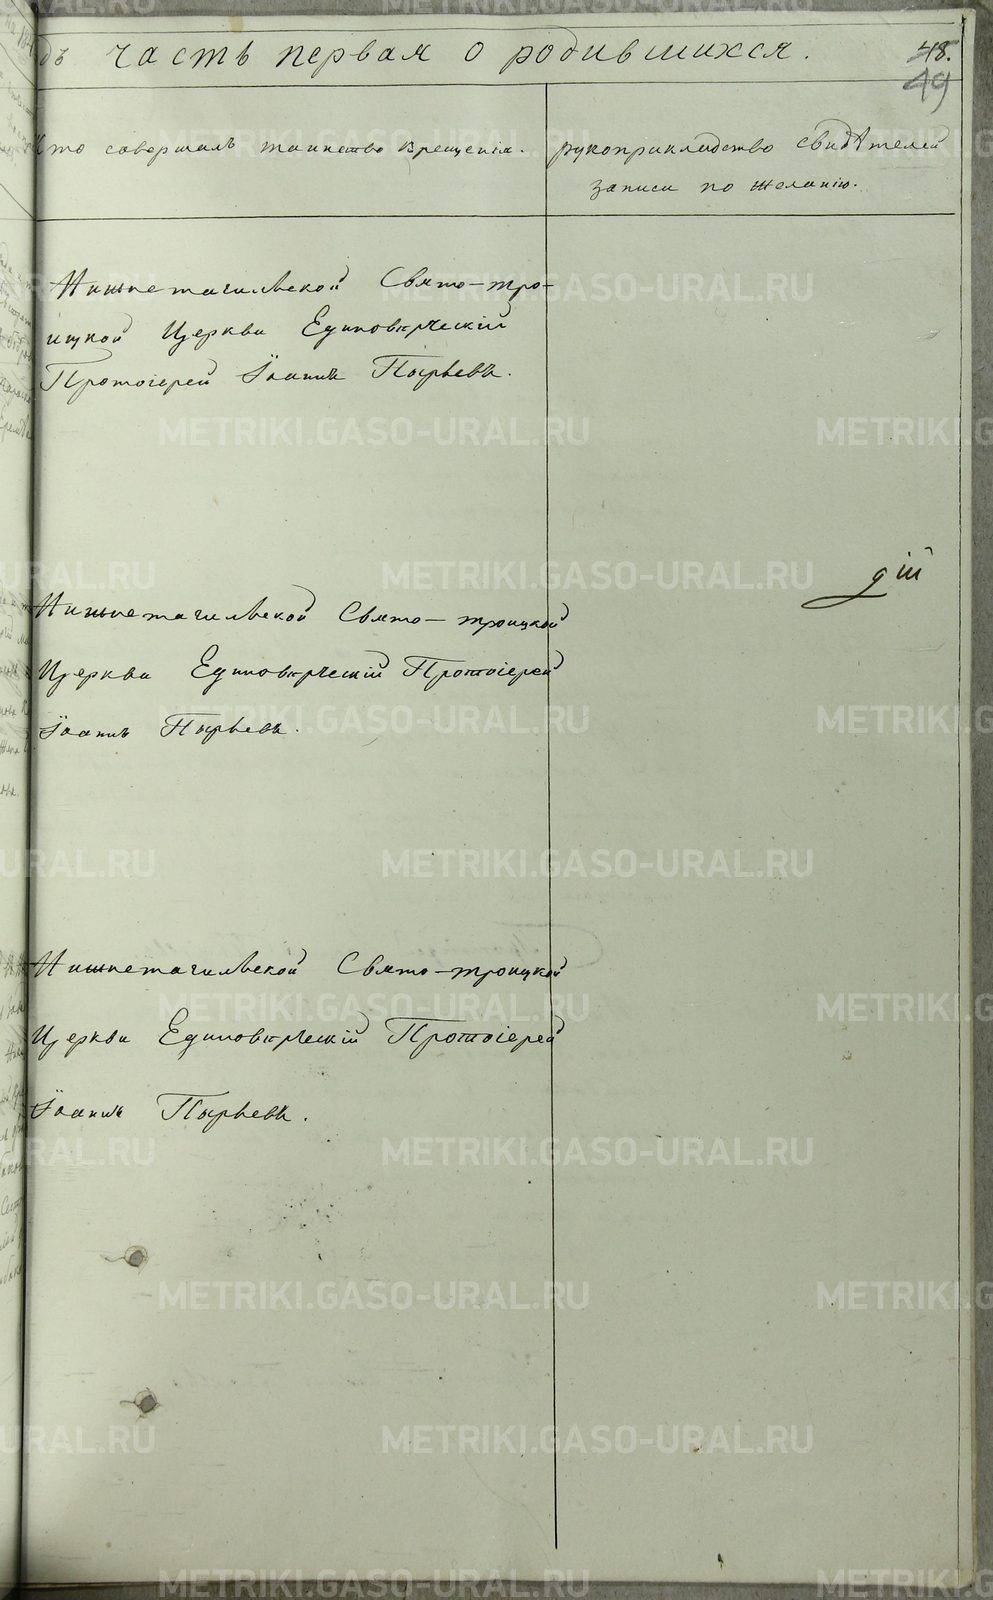 дъ часть первая о родившихся.
48.
49
Кто совершалъ таинство крещенія.
рукоприкладство свидѣтелей
записи по желанію.
Нижнетагильской Свято-тро-
ицкой Церкви Единовѣрческій
Протоіерей Іоаннъ Пырьевъ.
дій
Нижнетагильской Свято-троицкой
Церкви Единовѣрческій Протоіерей
Іоаннъ Пырьевъ.
Нижнетагильской Свято-троицкой
Церкви Единовѣрческій Протоіерей
Іоаннъ Пырьевъ.
METRIKI.GASO-URAL.RU